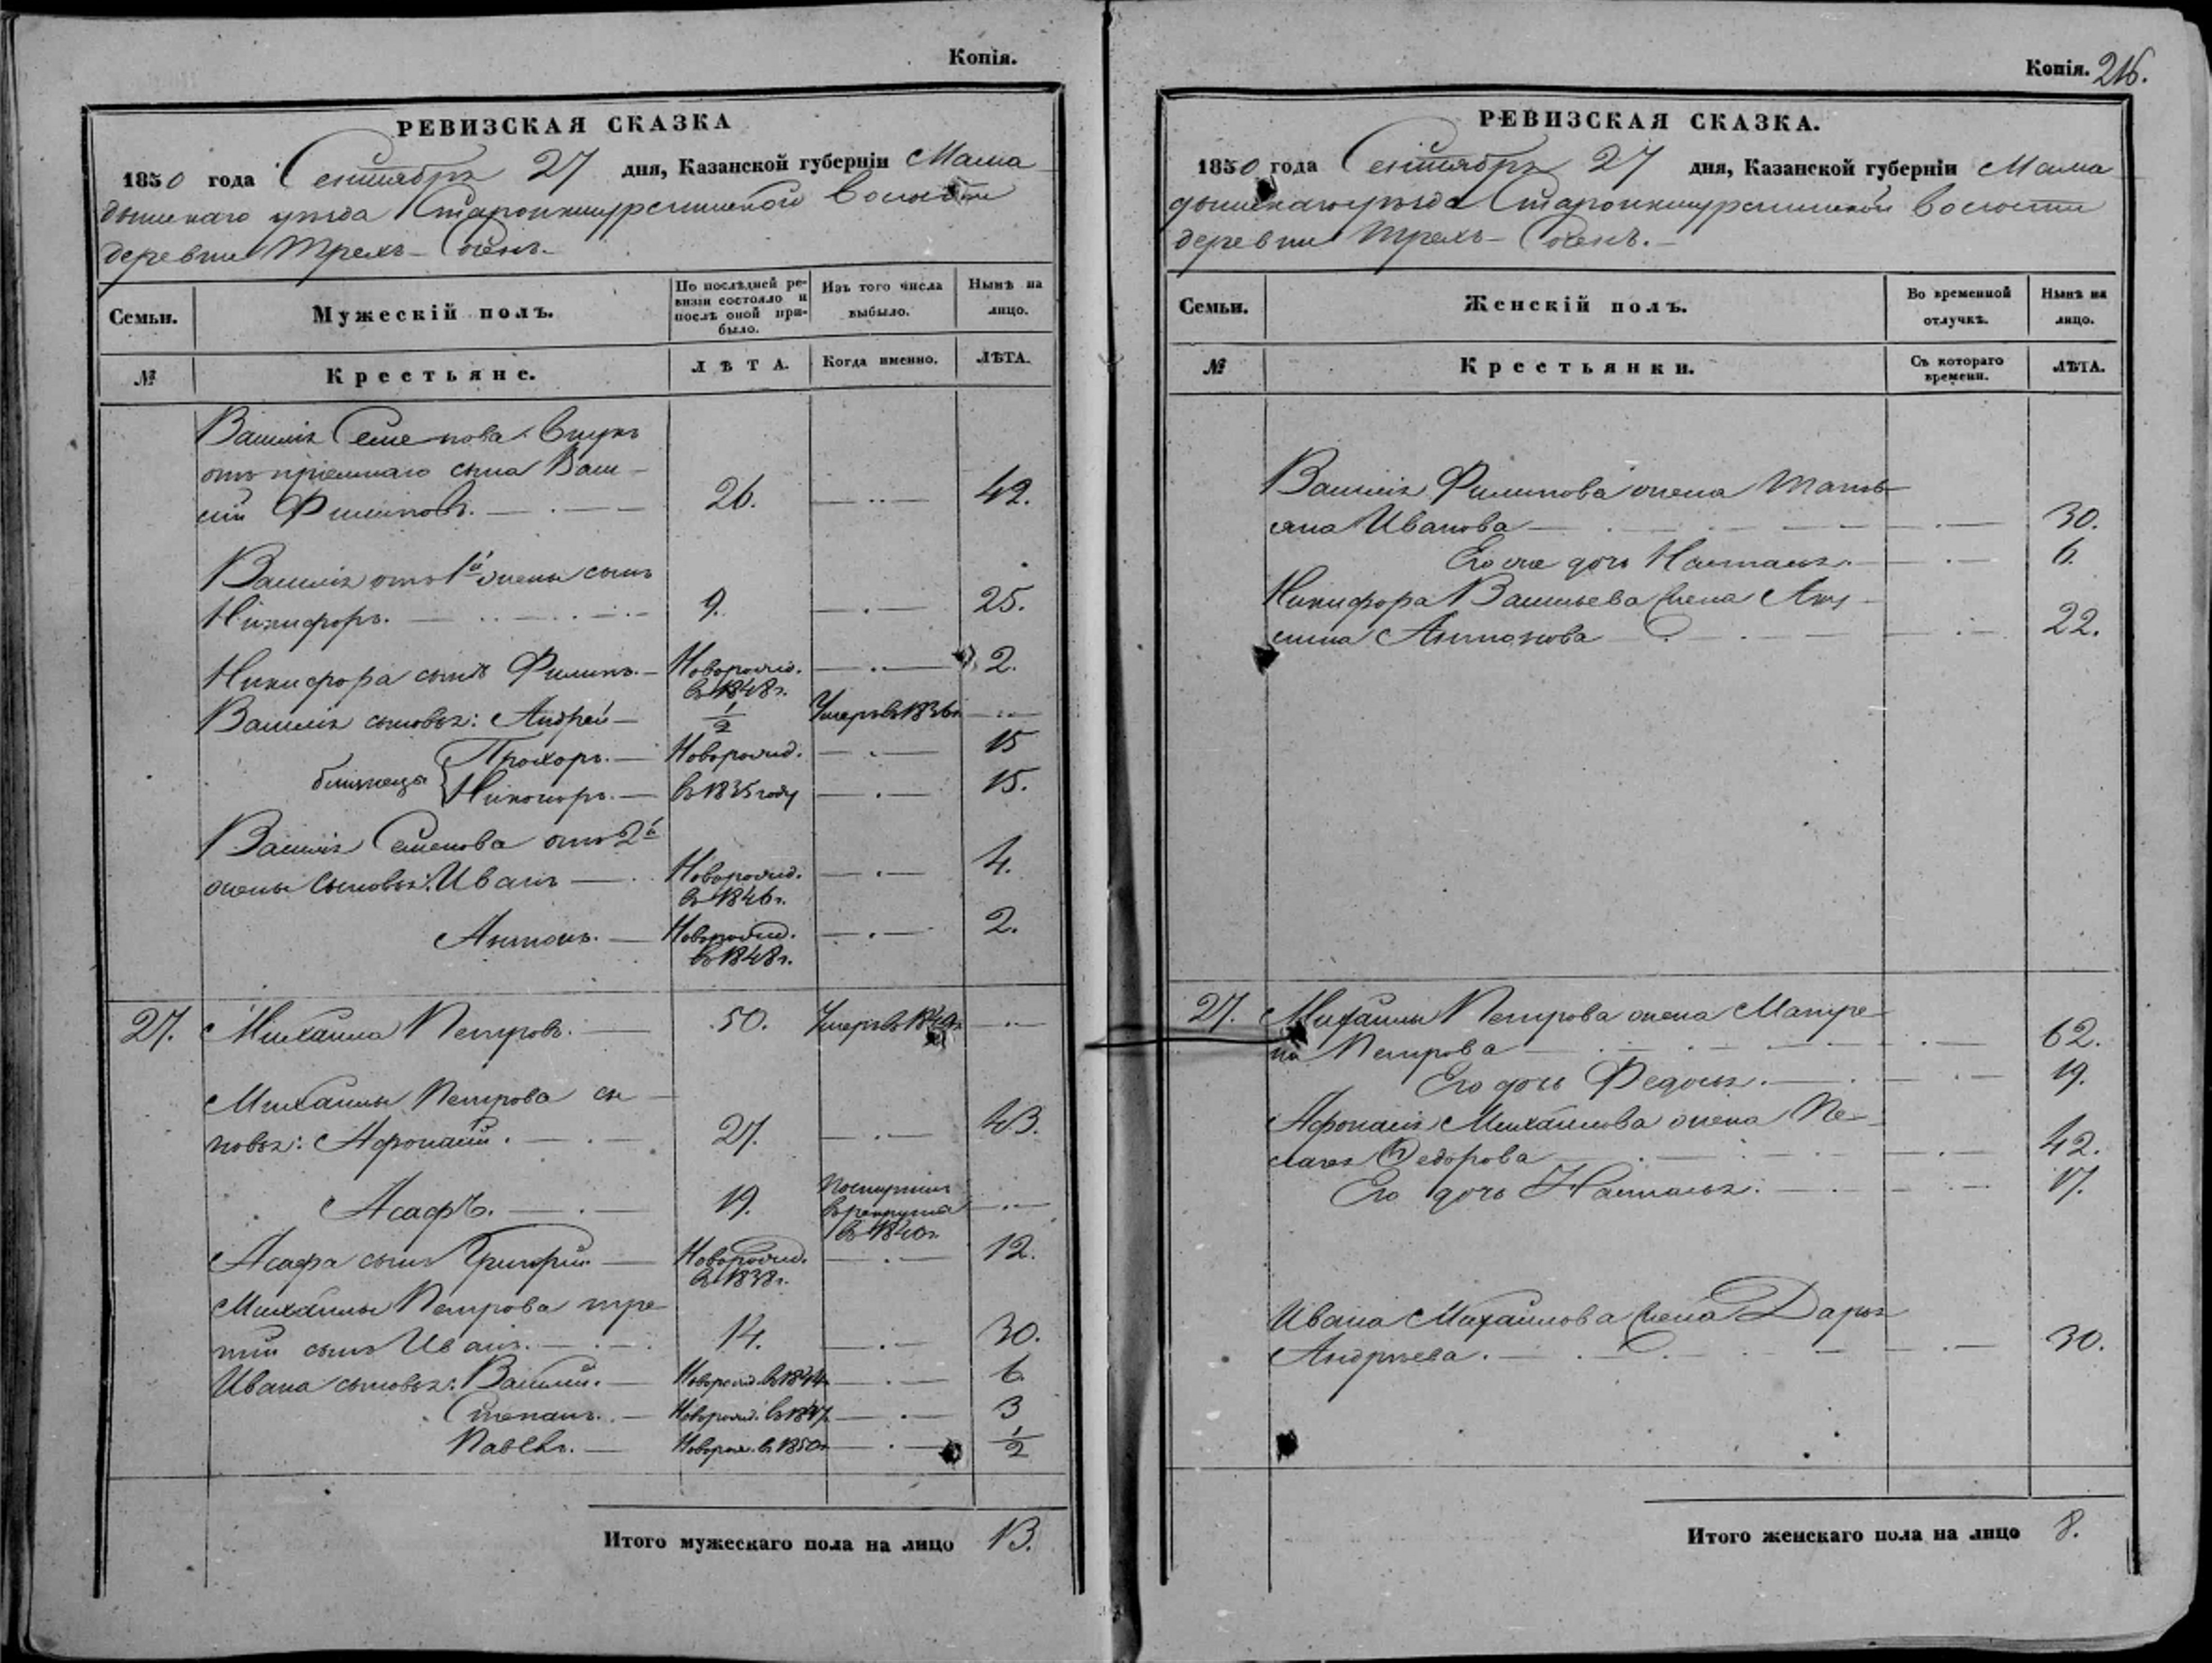 Копія.
РЕВИЗСКАЯ СКАЗКА
1850 года Сентября 27 дня, Казанской губерніи Мама
дышскаго уѣзда Волости
деревни Трехъ- Соенъ.
Семьи.
Мужескій полъ.
По послѣдней ре-
визіи состояло и
послѣ оной при-
было.
Изъ того числа
выбыло.
Нынѣ на
лицо.
№
Крестьяне.
ЛѢТА.
Когда именно.
ЛѢТА.
Василія Семенова внукъ
отъ пріемнаго сына Васи-
лій Филиповъ. 26. 42.
Василія отъ 1й жены сынъ
Никифоръ. 9. 25.
Никифора сынъ Филипъ. Новорожд. 2.
въ 1848 г.
Василія сыновья: Андрей 1/2 Умеръ въ 1836 г.
Прохоръ. Новорожд. 15
близнецы
Никоноръ. въ 1835 году 15.
Василія Семенова отъ 2й
жены сыновья: Иванъ Новорожд. 4.
въ 1846 г.
Антонъ. Новорожд. 2.
въ 1848 г.
27. Михайла Петровъ. 50. Умеръ въ
Михайлы Петрова сы
новья: Афонасій. 27. 43.
Асафъ. 19. Поступилъ
в рекруты
въ 1840 г.
Асафа сынъ Григорій Новорожд. 12.
въ 1838 г.
Михайлы Петрова тре
тій сынъ Иванъ. 14. 30.
Ивана сыновья: Василій. Новорожд. въ 1844 6
Степанъ. Новорожд. въ 1847. 3
Павелъ. Новорож. въ 1850 г. 1/2
Итого мужескаго пола на лицо 13.
Копія. 216.
РЕВИЗСКАЯ СКАЗКА.
1850 года Сентября 27 дня, Казанской губерніи Мама
дышскаго уѣзда Волости
деревни Трехъ- Соенъ.
Семьи.
Женскій полъ.
Во временной
отлучкѣ.
Нынѣ на
лицо.
№
Крестьянки.
Съ котораго
времени.
ЛѢТА.
Василія Филипова жена Тать
яна Иванова 30.
Его же дочь Настасья. 6.
Никифора Васильева жена Аку
лина Антонова 22.
27. Михайлы Петрова жена Матре
на Петрова 62.
Его дочь Федосья. 19.
Афонасія Михайлова жена Пе-
лагея Федорова 42.
Его дочь Настасья. 17.
Ивана Михайлова жена Дарья
Андреева. 30.
Итого женскаго пола на лицо 8.